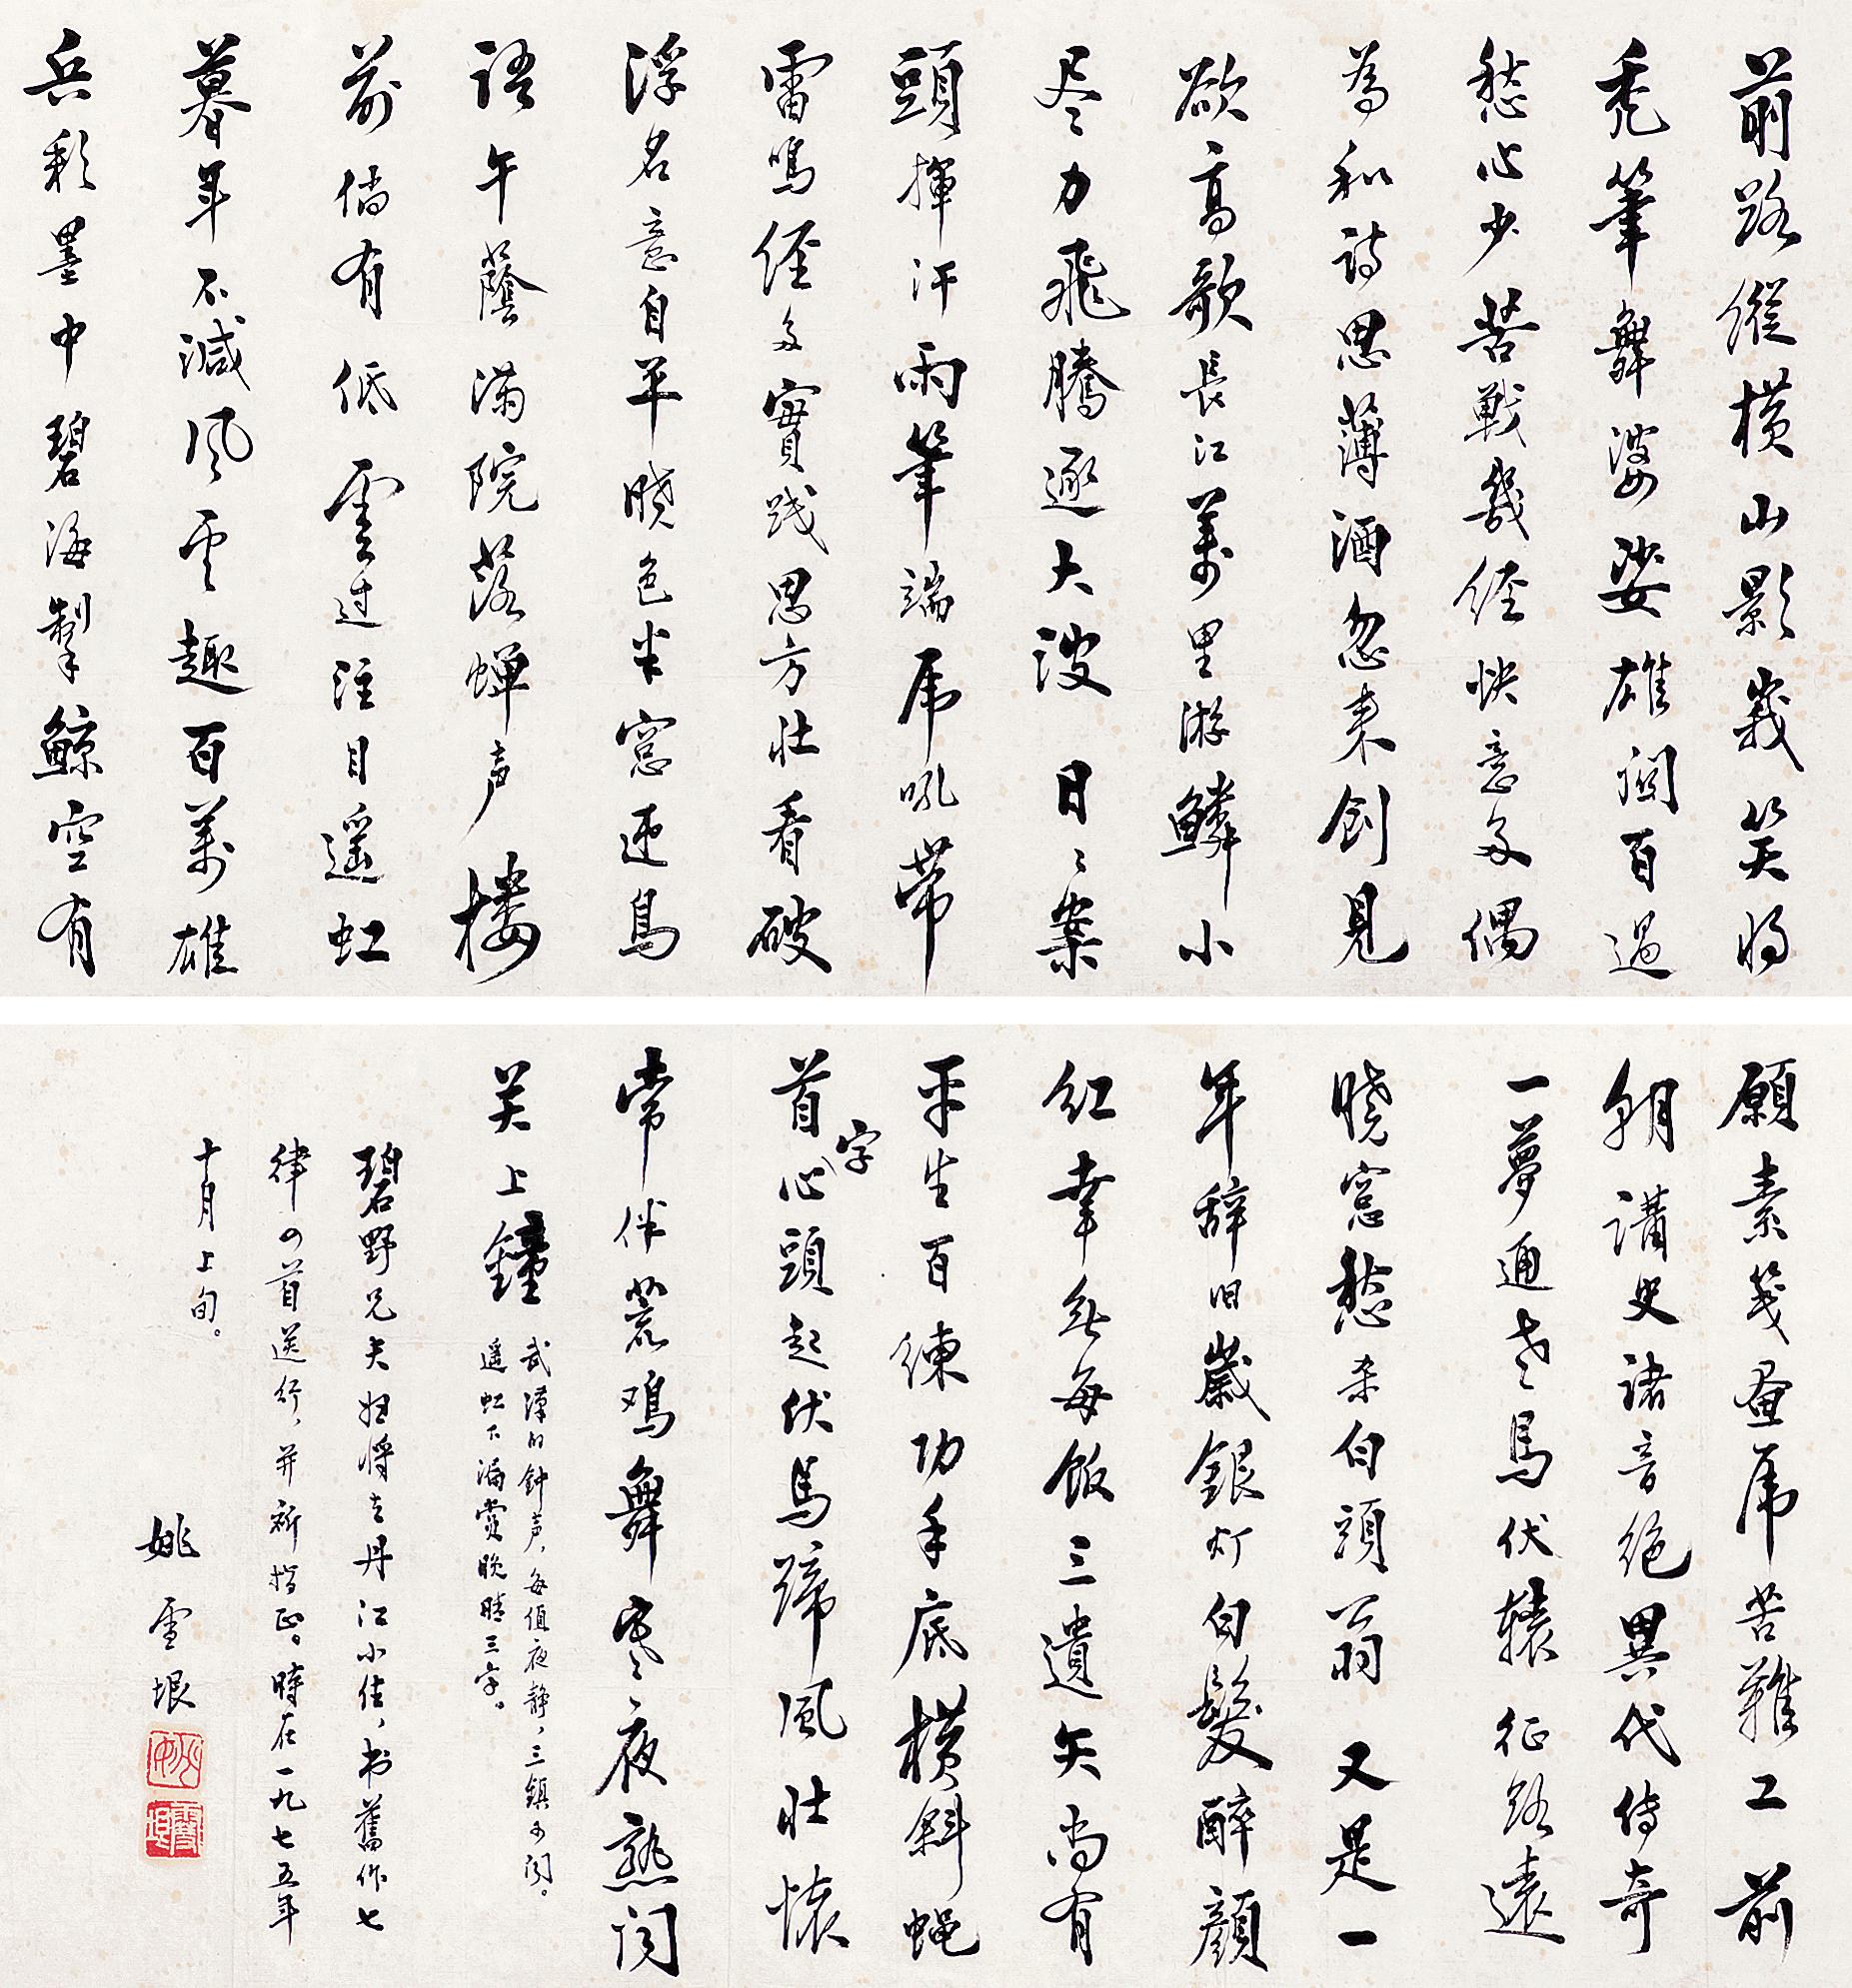 前路縱橫山影峩笑将
禿筆舞婆娑雄関百過
愁心少苦戰幾经快意多偶
為和诗思薄酒忽来創見
欲高歌長江萬里游鱗小
尽力飛騰逐大波 日〻案
頭揮汗雨筆端虎吼帶
雷鳴经多實践思方壮看破
浮名意自平曉色半窓迎鳥
語午蔭满院落蝉声楼
前倘有低雲过注目遥虹
暮年不減风雲趣百萬雄
兵彩墨中碧海掣鯨空有
願素箋畫虎苦難工前
朝講史诸音絶異代傳奇
一夢通老馬伏辕征路遠
曉窓愁杀白頭翁 又是一
年辞旧歲銀灯白髮醉顏
红幸無每飯三遺矢尚有
平生百練功手底橫斜蝇
首字心頭起伏馬蹄風壮懷
常伴荒鸡舞寒夜熟闻
关上鐘
武漢的钟声，每值夜静，三鎮可闻。
遥虹下漏賞晚晴三字。
碧野兄夫妇将去丹江小住，书舊作七
律四首送行，并祈指正。時在一九七五年
十月上旬。
姚雪垠
姚
雪垠